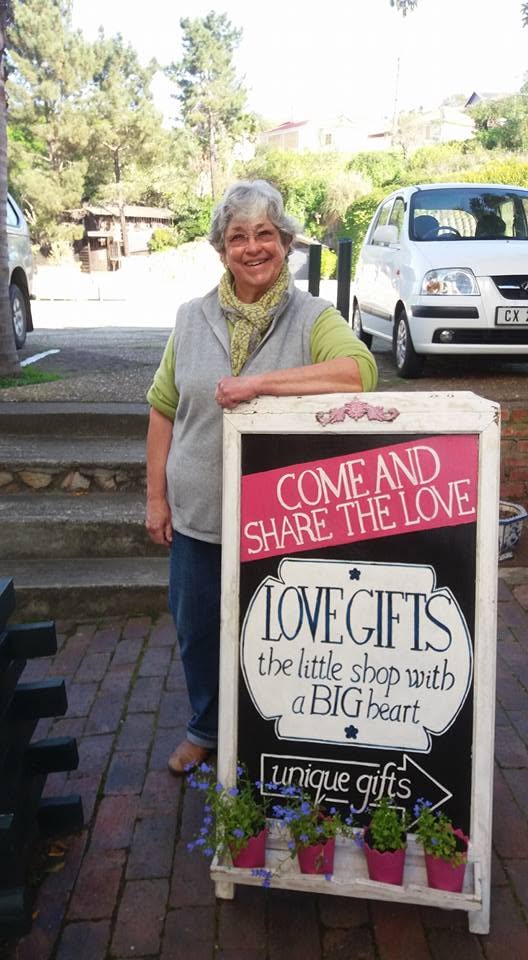 CX 2
COME AND
SHARE THE LOVE
LOVE GIFTS
the little shop with
a BIG heart
unique gifts